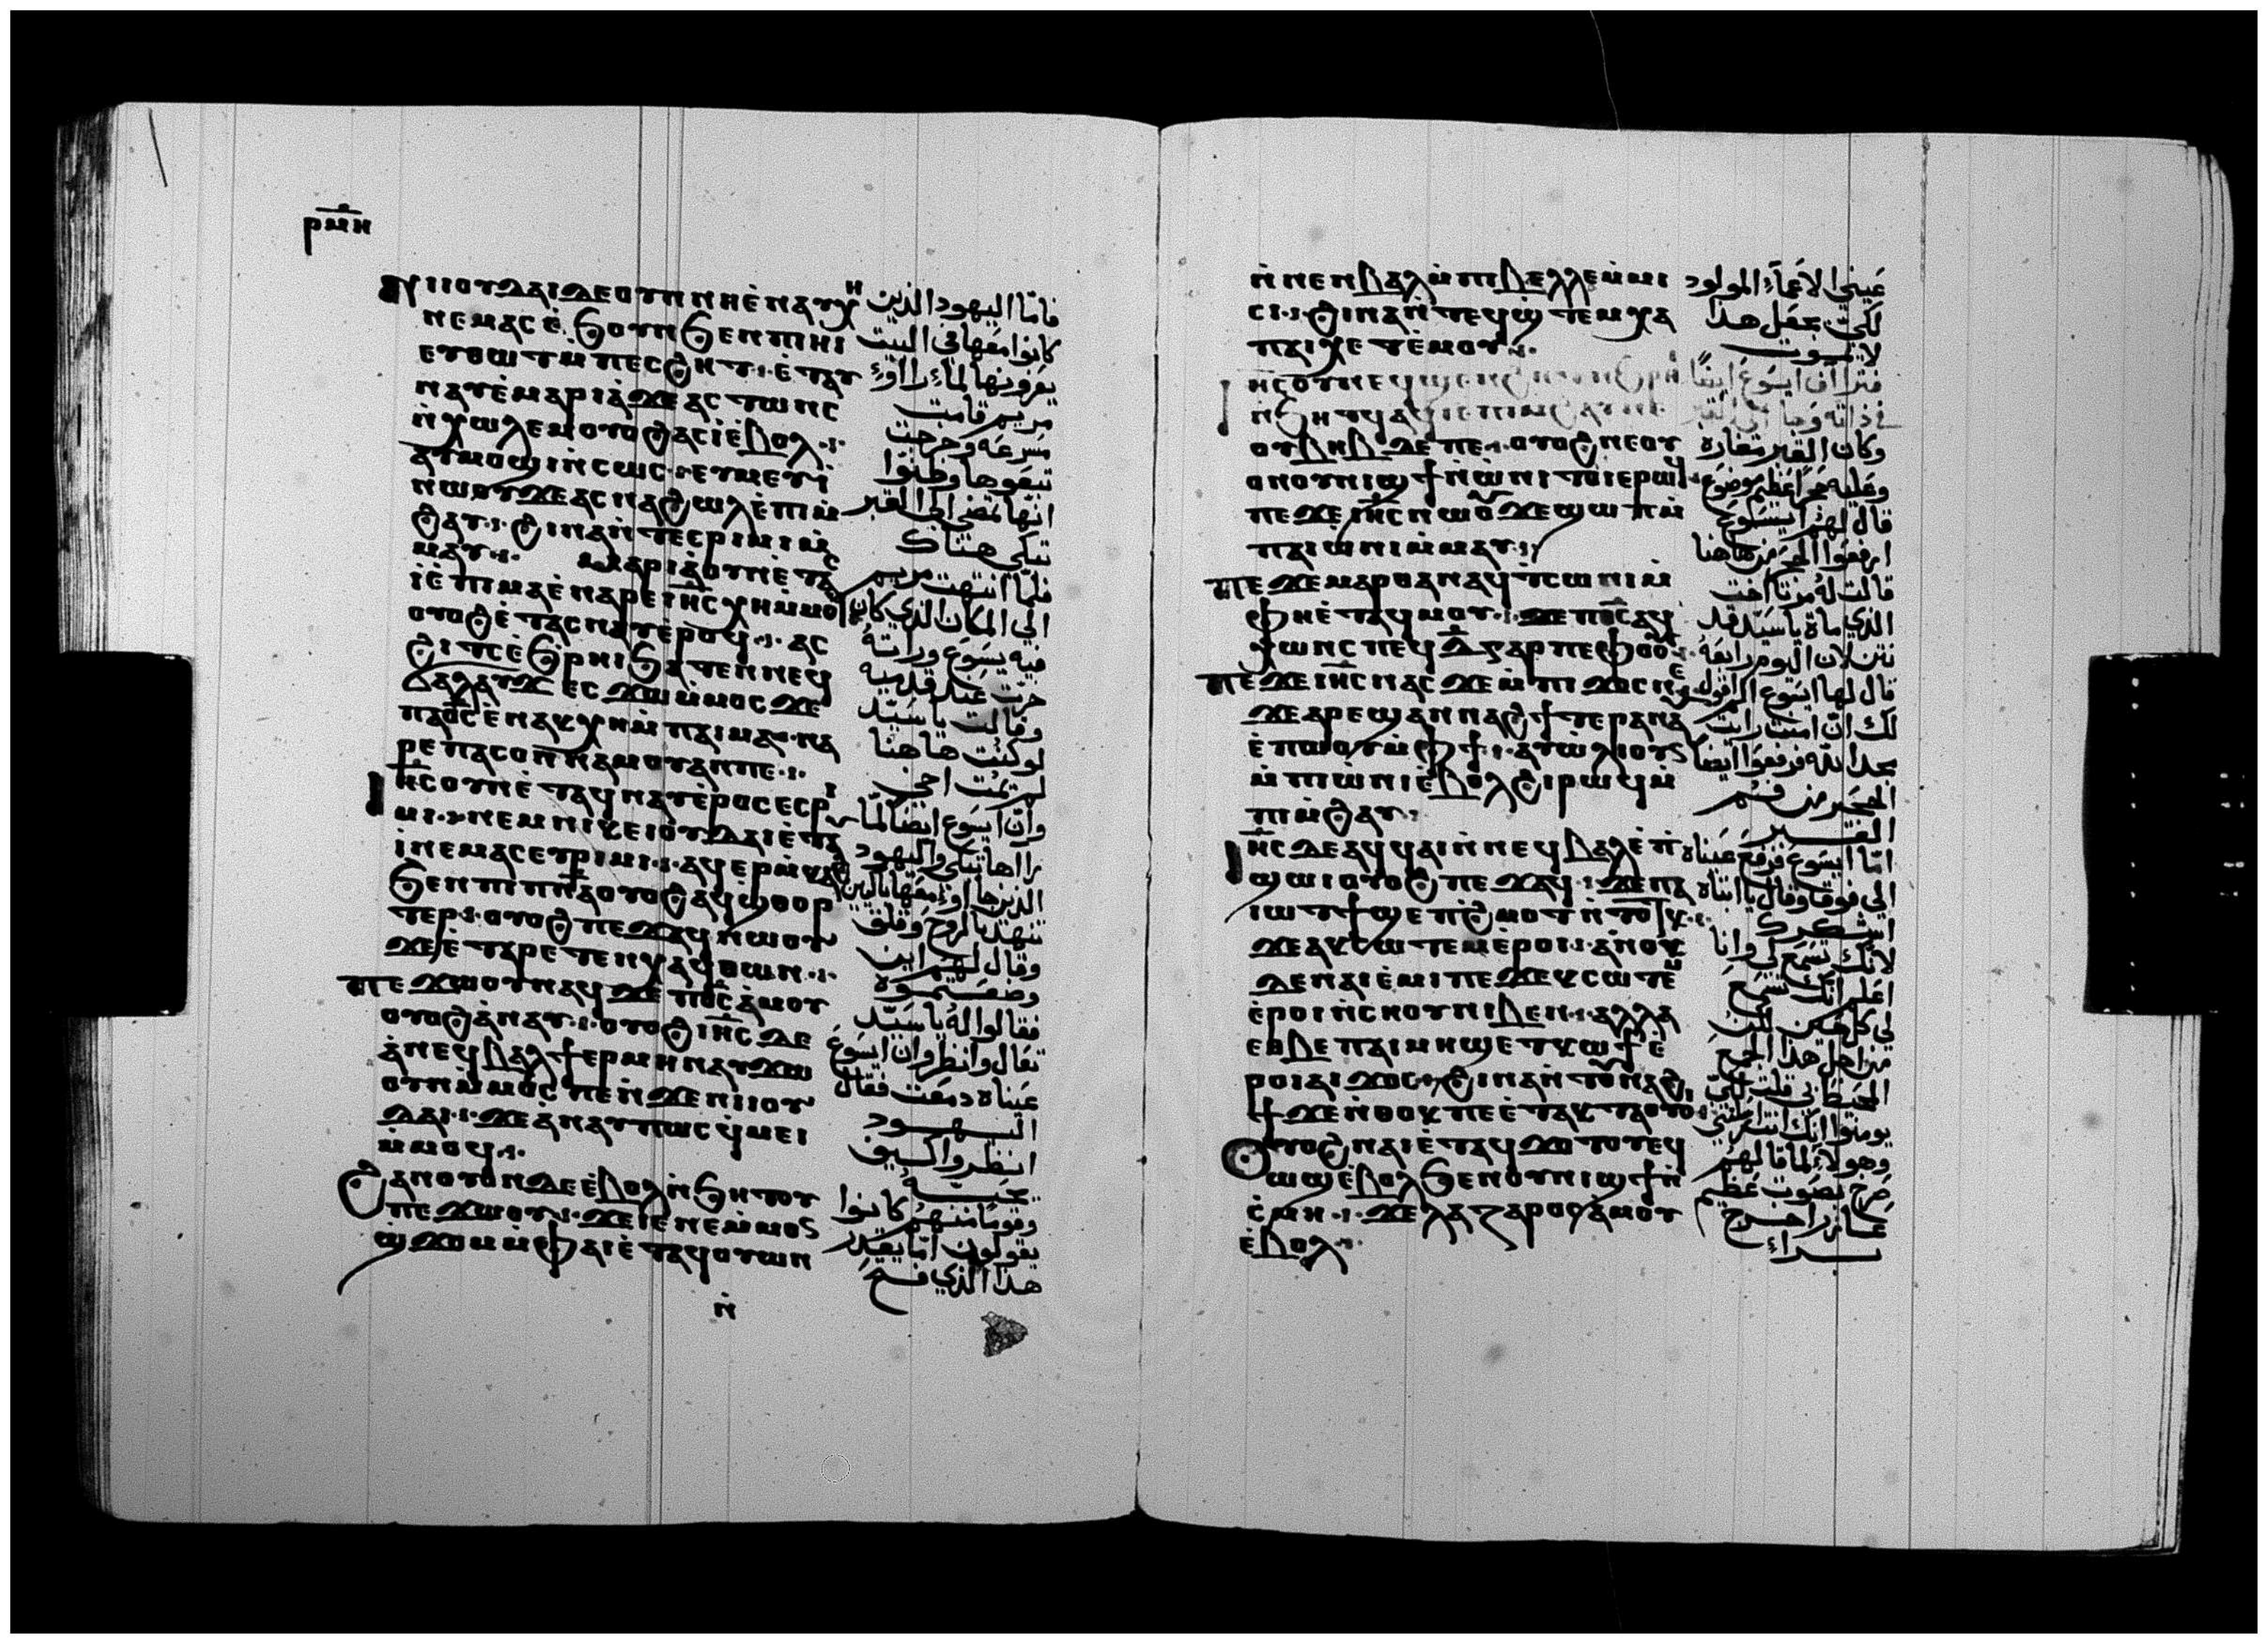 ⲣⲙⲏ
Ⲛⲓⲓⲟⲩⲇⲁⲓ ⲇⲉ ⲟⲩⲛ ⲛⲏ ⲉ̀ⲛⲁⲩⲭⲏ
ⲛⲉⲙⲁⲥ ⲉ̀ϧⲟⲩⲛ ϧⲉⲛ ⲡⲓⲏⲓ
ⲉⲧⲑⲱⲧ ⲙ̀ⲡⲉⲥϩⲏⲧ · ⲉ̀ⲧⲁⲩ
ⲛⲁⲩ ⲉ̀ⲙⲁⲣⲓⲁ̀ ϫⲉ ⲁⲥⲧⲱⲛⲥ
ⲛ̀ⲭⲱⲗⲉⲙ ⲟⲩⲟϩ ⲁⲥⲓ̀ ⲉ̀ⲃⲟⲗ ·
ⲁⲩⲙⲟϣⲓ ⲛ̀ⲥⲱⲥ · ⲉⲩⲙⲉⲩⲓ̀
ⲛⲱⲟⲩ ϫⲉ ⲁⲥⲛⲁϩⲱⲗ ⲉ̀ⲡⲓⲙ̀
ϩⲁⲩ · ϩⲓⲛⲁ ⲛ̀ⲧⲉⲥⲣⲓⲙⲓ ⲙ̀
ⲙⲁⲩ · Ⲙⲁⲣⲓⲁ̀ ⲟⲩⲛ ⲉ̀ⲧⲁⲥ
ⲓ̀ ⲉ̀ⲡⲓⲙⲁ ⲉ̀ⲛⲁⲣⲉ ⲓⲏ̅ⲥ̅ ⲭⲏ ⲙ̀ⲙⲟϥ
ⲟⲩⲟϩ ⲉ̀ⲧⲁⲥⲛⲁⲩ ⲉ̀ⲣⲟϥ · ⲁⲥ
ϩⲓⲧⲥ ⲉ̀ϧⲣⲏⲓ ϧⲁⲧⲉⲛ ⲛⲉϥ
ϭⲁⲗⲁⲩϫ ⲉⲥϫⲱ ⲙ̀ⲙⲟⲥ ϫⲉ
ⲡⲁⲟ̅ⲥ̅ ⲉ̀ⲛⲁⲕⲭⲏ ⲙ̀ⲡⲁⲓⲙⲁ · ⲛⲁ
ⲣⲉ ⲡⲁⲥⲟⲛ ⲛⲁⲙⲟⲩ ⲁⲛ ⲡⲉ ·
Ⲓⲏ̅ⲥ̅ ⲟⲩⲛ ⲉ̀ⲧⲁϥⲛⲁⲩ ⲉ̀ⲣⲟⲥ ⲉⲥⲣⲓ
ⲙⲓ · ⲛⲉⲙ ⲛⲓⲕⲉⲓⲟⲩⲇⲁⲓ ⲉ̀ⲧⲁⲩ
ⲓ̀ ⲛⲉⲙⲁⲥ ⲉⲩⲣⲓⲙⲓ · ⲁϥⲉⲣⲙ̀ⲕⲁϩ
ϧⲉⲛ ⲡⲓⲡ̅ⲛ̅ⲁ̅ ⲟⲩⲟϩ ⲁϥϣ̀ⲑⲟⲣ
ⲧⲉⲣ · ⲟⲩⲟϩ ⲡⲉϫⲁϥ ⲛⲱⲟⲩ
ϫⲉ ⲉ̀ⲧⲁⲣⲉⲧⲉⲛⲭⲁϥ ⲑⲱⲛ ·
Ⲡⲉϫⲱⲟⲩ ⲛⲁϥ ϫⲉ ⲡⲟ̅ⲥ̅ ⲁ̀ⲙⲟⲩ
ⲟⲩⲟϩ ⲁ̀ⲛⲁⲩ · ⲟⲩⲟϩ ⲓⲏ̅ⲥ̅ ⲇⲉ
ⲁ̀ ⲛⲉϥⲃⲁⲗ ϯⲉⲣⲙⲏ ⲛⲁⲩϫⲱ
ⲟⲩⲛ ⲙ̀ⲙⲟⲥ ⲡⲉ ⲛ̀ϫⲉ ⲛⲓⲓⲟⲩ
ⲇⲁⲓ · ϫⲉ ⲁ̀ⲛⲁⲩ ⲡⲱⲥ ϥ̀ⲙⲉⲓ
ⲙ̀ⲙⲟϥ ·
Ϩⲁⲛⲟⲩⲟⲛ ⲇⲉ ⲉ̀ⲃⲟⲗ ⲛ̀ϧⲏⲧⲟⲩ
ⲡⲉϫⲱⲟⲩ · ϫⲉ ⲓⲉ ⲛⲉⲙ̀ⲙⲟⲛ
ϣ̀ϫⲟⲙ ⲙ̀ⲫⲁⲓ ⲉ̀ⲧⲁϥⲟⲩⲱⲛ
ⲛ̀
فامّا اليهود الذين
كانوا معها في البيت
يعزونها لماء راوء
مريم قامت
مسرعه وخرجت
تبعوها وظنوا
انها تمضي الي القبر
تبكي هناك
فلما انتهت مريم
الي المكان الذي كان
فيه يسوع وراته
خرت عند قدميه
وقالت يا سيد
لو كنت هاهنا
لم يمت اخي
وان ايسوع ايضا لمّا
راها تبكي واليهود
تنهد بالروح وقلق
وقال لهم اين
وضعتموه
فقالوا له يا سيد
تعال وانظر وان ايسوع
عيناه دمعت فقال
اليهود
انظروا كيف
يحبه
وقوما منهم كانوا
يقولون امّا يقدر
هذا الذي فتح
ⲛ̀ⲛⲉⲛⲃⲁⲗ ⲙ̀ⲡⲓⲃⲉⲗⲗⲉ ⲙ̀ⲙⲓ
ⲥⲓ · ϩⲓⲛⲁ ⲛ̀ⲧⲉϥϣ̀ⲧⲉⲙⲭⲁ
ⲡⲁⲓⲭⲉⲧ ⲉ̀ⲙⲟⲩ ·
Ⲓⲏ̅ⲥ̅ ⲟⲩⲛ
ⲛ̀ϧⲏⲧϥ ⲁϥⲓ̀ ⲉ̀ⲡⲓⲙ̀ϩⲁⲩ ⲛⲉ
ⲟⲩⲃⲏⲃ ⲇⲉ ⲡⲉ · ⲟⲩⲟϩ ⲛⲉⲟⲩ
ⲟⲛ ⲟⲩⲛⲓϣϯ ⲛ̀ⲱ̀ⲛⲓ ⲧⲟⲓ ⲉⲣⲱϥ
Ⲡⲉϫⲉ ⲓⲏ̅ⲥ̅ ⲛⲱⲟⲩ ϫⲉ ϣⲱⲡ ⲙ̀
ⲡⲁⲓⲱⲛⲓ ⲙ̀ⲙⲁⲩ ·
Ⲡⲉϫⲉ ⲙⲁⲣⲑⲁ ⲛⲁϥ ⲧ̀ⲥⲱⲛⲓ ⲙ̀
ⲫⲏ ⲉ̀ⲧⲁϥⲙⲟⲩ · ϫⲉ ⲡⲟ̅ⲥ̅ ⲁϥ
ⲭⲱⲛⲥ ⲡⲉϥⲇ̅ ⲅⲁⲣ ⲡⲉ ⲫⲟⲟⲩ ·
Ⲡⲉϫⲉ ⲓⲏ̅ⲥ̅ ⲛⲁⲥ ϫⲉ ⲙ̀ⲡⲓϫⲟⲥ ⲛⲉ
ϫⲉ ⲁⲣⲉϣⲁⲛⲛⲁϩϯ ⲧⲉⲣⲁⲛⲁⲩ
ⲉ̀ⲡⲱⲟⲩ ⲙ̀ⲫϯ · ⲁⲩⲱ̀ⲗⲓ ⲟⲩⲛ
ⲙ̀ⲡⲓⲱ̀ⲛⲓ ⲉ̀ⲃⲟⲗ ϩⲓⲣⲱϥ ⲙ̀
ⲡⲓⲙ̀ϩⲁⲩ ·
Ⲓⲏ̅ⲥ̅ ⲇⲉ ⲁϥϥⲁⲓ ⲛ̀ⲛⲉϥⲃⲁⲗ ⲉ̀ⲡ̀
ϣⲱⲓ ⲟⲩⲟϩ ⲡⲉϫⲁϥ · ϫⲉ ⲡⲁ
ⲓⲱⲧ ϯϣⲉⲡϩ̀ⲙⲟⲧ ⲛ̀ⲧⲟⲧⲕ ·
ϫⲉ ⲁⲕⲥⲱⲧⲉⲙ ⲉ̀ⲣⲟⲓ · ⲁ̀ⲛⲟⲕ
ⲇⲉ ⲛⲁⲓⲉ̀ⲙⲓ ⲡⲉ ϫⲉ ⲕⲥⲱⲧⲉⲙ
ⲉ̀ⲣⲟⲓ ⲛ̀ⲥⲏⲟⲩ ⲛⲓⲃⲉⲛ · ⲁⲗⲗⲁ
ⲉⲑⲃⲉ ⲡⲁⲓⲙⲏϣ ⲉⲧⲕⲱϯ ⲉ̀
ⲣⲟⲓ ⲁⲓϫⲟⲥ · ϩⲓⲛⲁ ⲛ̀ⲧⲟⲩⲛⲁϩ
ϯ ϫⲉ ⲛ̀ⲑⲟⲕ ⲡⲉ ⲉ̀ⲧⲁⲕⲧⲁⲟⲩⲟⲓ
Ⲟⲩⲟϩ ⲛⲁⲓ ⲉ̀ⲧⲁϥϫⲟⲧⲟⲩ ⲁϥ
ⲱϣ ⲉ̀ⲃⲟⲗ ϧⲉⲛ ⲟⲩⲛⲓϣϯ ⲛ̀
ⲥ̀ⲙⲏ · ϫⲉ ⲗⲁⲍⲁⲣⲟⲥ ⲁ̀ⲙⲟⲩ
ⲉ̀ⲃⲟⲗ ·
عيني الاعماء المولود
لكي يجعل هذا
لا يموت
وكان القبر مغارة
وعليه حجرا عظيم موضوع
قال لهم ايسوع
ارفعوا الحجر من هاهنا
قالت له مرتا اخت
الذي ماة يا سيد قد
نتن لان اليوم رابعه
قال لها ايسوع الم اقول
لك ان امنت رايت
مجد الله فرفعوا ايضا
الحجر من فم
القبر
امّا ايسوع فرفع عيناه
الي فوق وقال يا ابتاه
اشكرك
لانك تسمع لي وانا
اعلم انك تسمع
لي كل حين لكن
من اجل هذا الجمع
المحيط بي قلت لكي
يومنوا انك انت ارسلتني
وهولاء لما قالهم
صرخ بصوت عظيم
عازر اخرج
براء